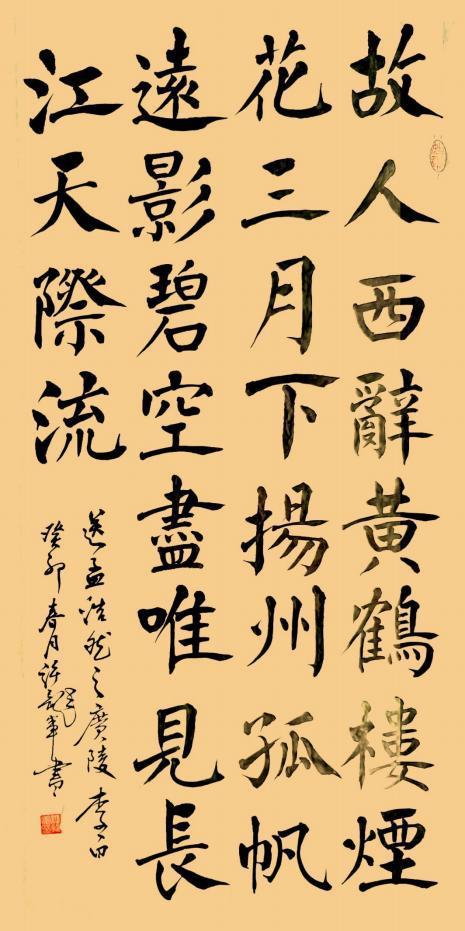 故人西辭黄鶴樓煙
花三月下揚州孤帆
遠影碧空盡唯見長
江天際流
送孟浩然之廣陵 李白
癸卯春月許軍書